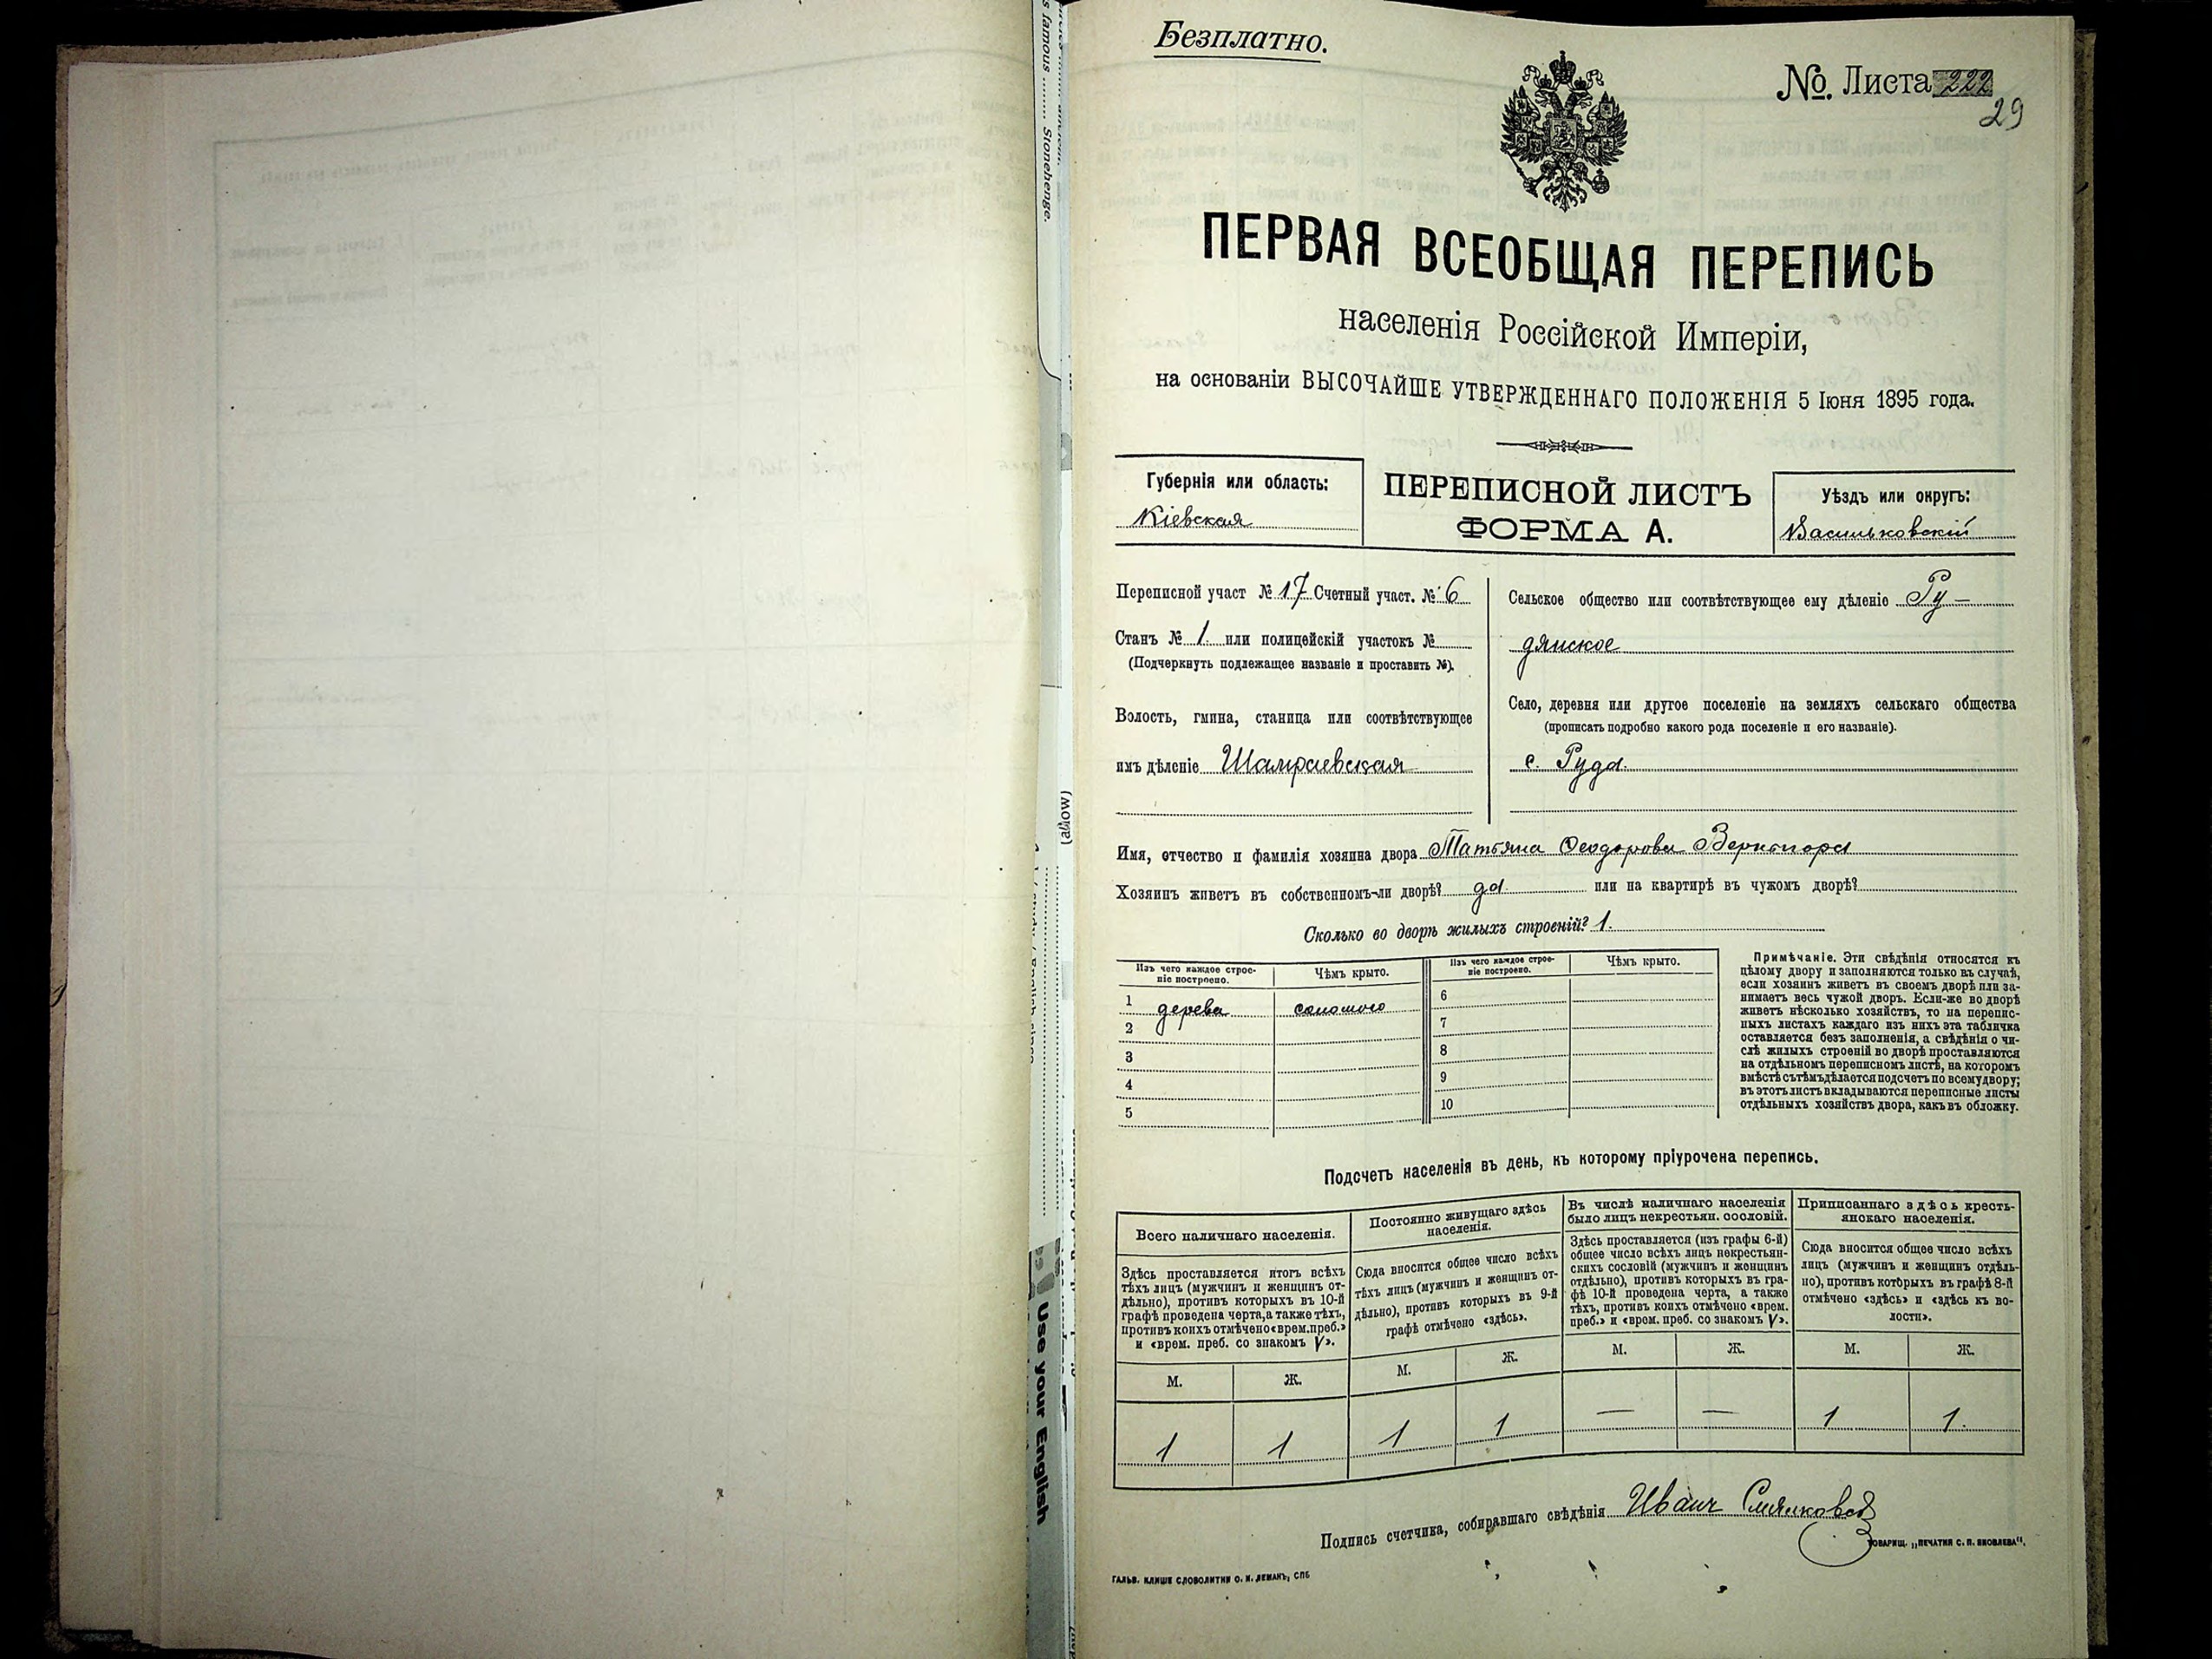 Безплатно.
№ Листа 222
29
ПЕРВАЯ ВСЕОБЩАЯ ПЕРЕПИСЬ
населенія Россійской Имперіи,
на основаніи ВЫСОЧАЙШЕ УТВЕРЖДЕННАГО ПОЛОЖЕНІЯ 5 Іюня 1895 года.
Губернія или область:
Кіевская
ПЕРЕПИСНОЙ ЛИСТЪ
ФОРМА А.
Уѣздъ или округъ:
Васильковскій
Переписной участ № 17 Счетный участ. № 6
Станъ № 1. или полицейскій участокъ №
(Подчеркнуть подлежащее названіе и проставить №).
Волость, гмина, станица или соотвѣтствующее
имъ дѣленіе Шамраевская
Сельское общество или соотвѣтствующее ему дѣленіе Ру-
дянское
Село, деревня или другое поселеніе на земляхъ сельскаго общества
(прописать подробно какого рода поселеніе и его названіе).
с. Руда.
Имя, отчество и фамилія хозяина двора Татьяна Феодорова Вернигора
Хозяинъ живетъ въ собственномъ-ли дворѣ? да или на квартирѣ въ чужомъ дворѣ?
Сколько во дворѣ жилыхъ строеній? 1.
Изъ чего каждое строе-
ніе построено.
Чѣмъ крыто.
Изъ чего каждое строе-
ніе построено.
Чѣмъ крыто.
1 дерева соломою
2
3
4
5
6
7
8
9
10
Примѣчаніе. Эти свѣдѣнія относятся къ
цѣлому двору и заполняются только въ случаѣ,
если хозяинъ живетъ въ своемъ дворѣ или за-
нимаетъ весь чужой дворъ. Если-же во дворѣ
живетъ нѣсколько хозяйствъ, то на перепис-
ныхъ листахъ каждаго изъ нихъ эта табличка
оставляется безъ заполненія, а свѣдѣнія о чи-
слѣ жилыхъ строеній во дворѣ проставляются
на отдѣльномъ переписномъ листѣ, на которомъ
вмѣстѣ съ тѣмъ дѣлается подсчетъ по всему двору;
въ этотъ листъ вкладываются переписные листы
отдѣльныхъ хозяйствъ двора, какъ въ обложку.
Подсчетъ населенія въ день, къ которому пріурочена перепись.
Всего наличнаго населенія.
Здѣсь проставляется итогъ всѣхъ
тѣхъ лицъ (мужчинъ и женщинъ от-
дѣльно), противъ которыхъ въ 10-й
графѣ проведена черта, а также тѣхъ,
противъ коихъ отмѣчено «врем. преб.»
и «врем. преб. со знакомъ V».
М. Ж.
1 1
Постоянно живущаго здѣсь
населенія.
Сюда вносится общее число всѣхъ
тѣхъ лицъ (мужчинъ и женщинъ от-
дѣльно), противъ которыхъ въ 9-й
графѣ отмѣчено «здѣсь».
М. Ж.
1 1
Въ числѣ наличнаго населенія
было лицъ некрестьян. сословій.
Здѣсь проставляется (изъ графы 6-й)
общее число всѣхъ лицъ некрестьян-
скихъ сословій (мужчинъ и женщинъ
отдѣльно), противъ которыхъ въ гра-
фѣ 10-й проведена черта, а также
тѣхъ, противъ коихъ отмѣчено «врем.
преб.» и «врем. преб. со знакомъ V».
М. Ж.
— —
Приписаннаго здѣсь кресть-
янскаго населенія.
Сюда вносится общее число всѣхъ
лицъ (мужчинъ и женщинъ отдѣль-
но), противъ которыхъ въ графѣ 8-й
отмѣчено «здѣсь» и «здѣсь къ во-
лости».
М. Ж.
1 1.
Подпись счетчика, собиравшаго свѣдѣнія Иванъ
ГАЛЬВ. КЛИШЕ СЛОВОЛИТНИ О. И. ЛЕМАНЪ, СПБ
ТОВАРИЩ. „ПЕЧАТНЯ С. П. ЯКОВЛЕВА".
s famous ........ Stonehenge.
(allow)
Use your English